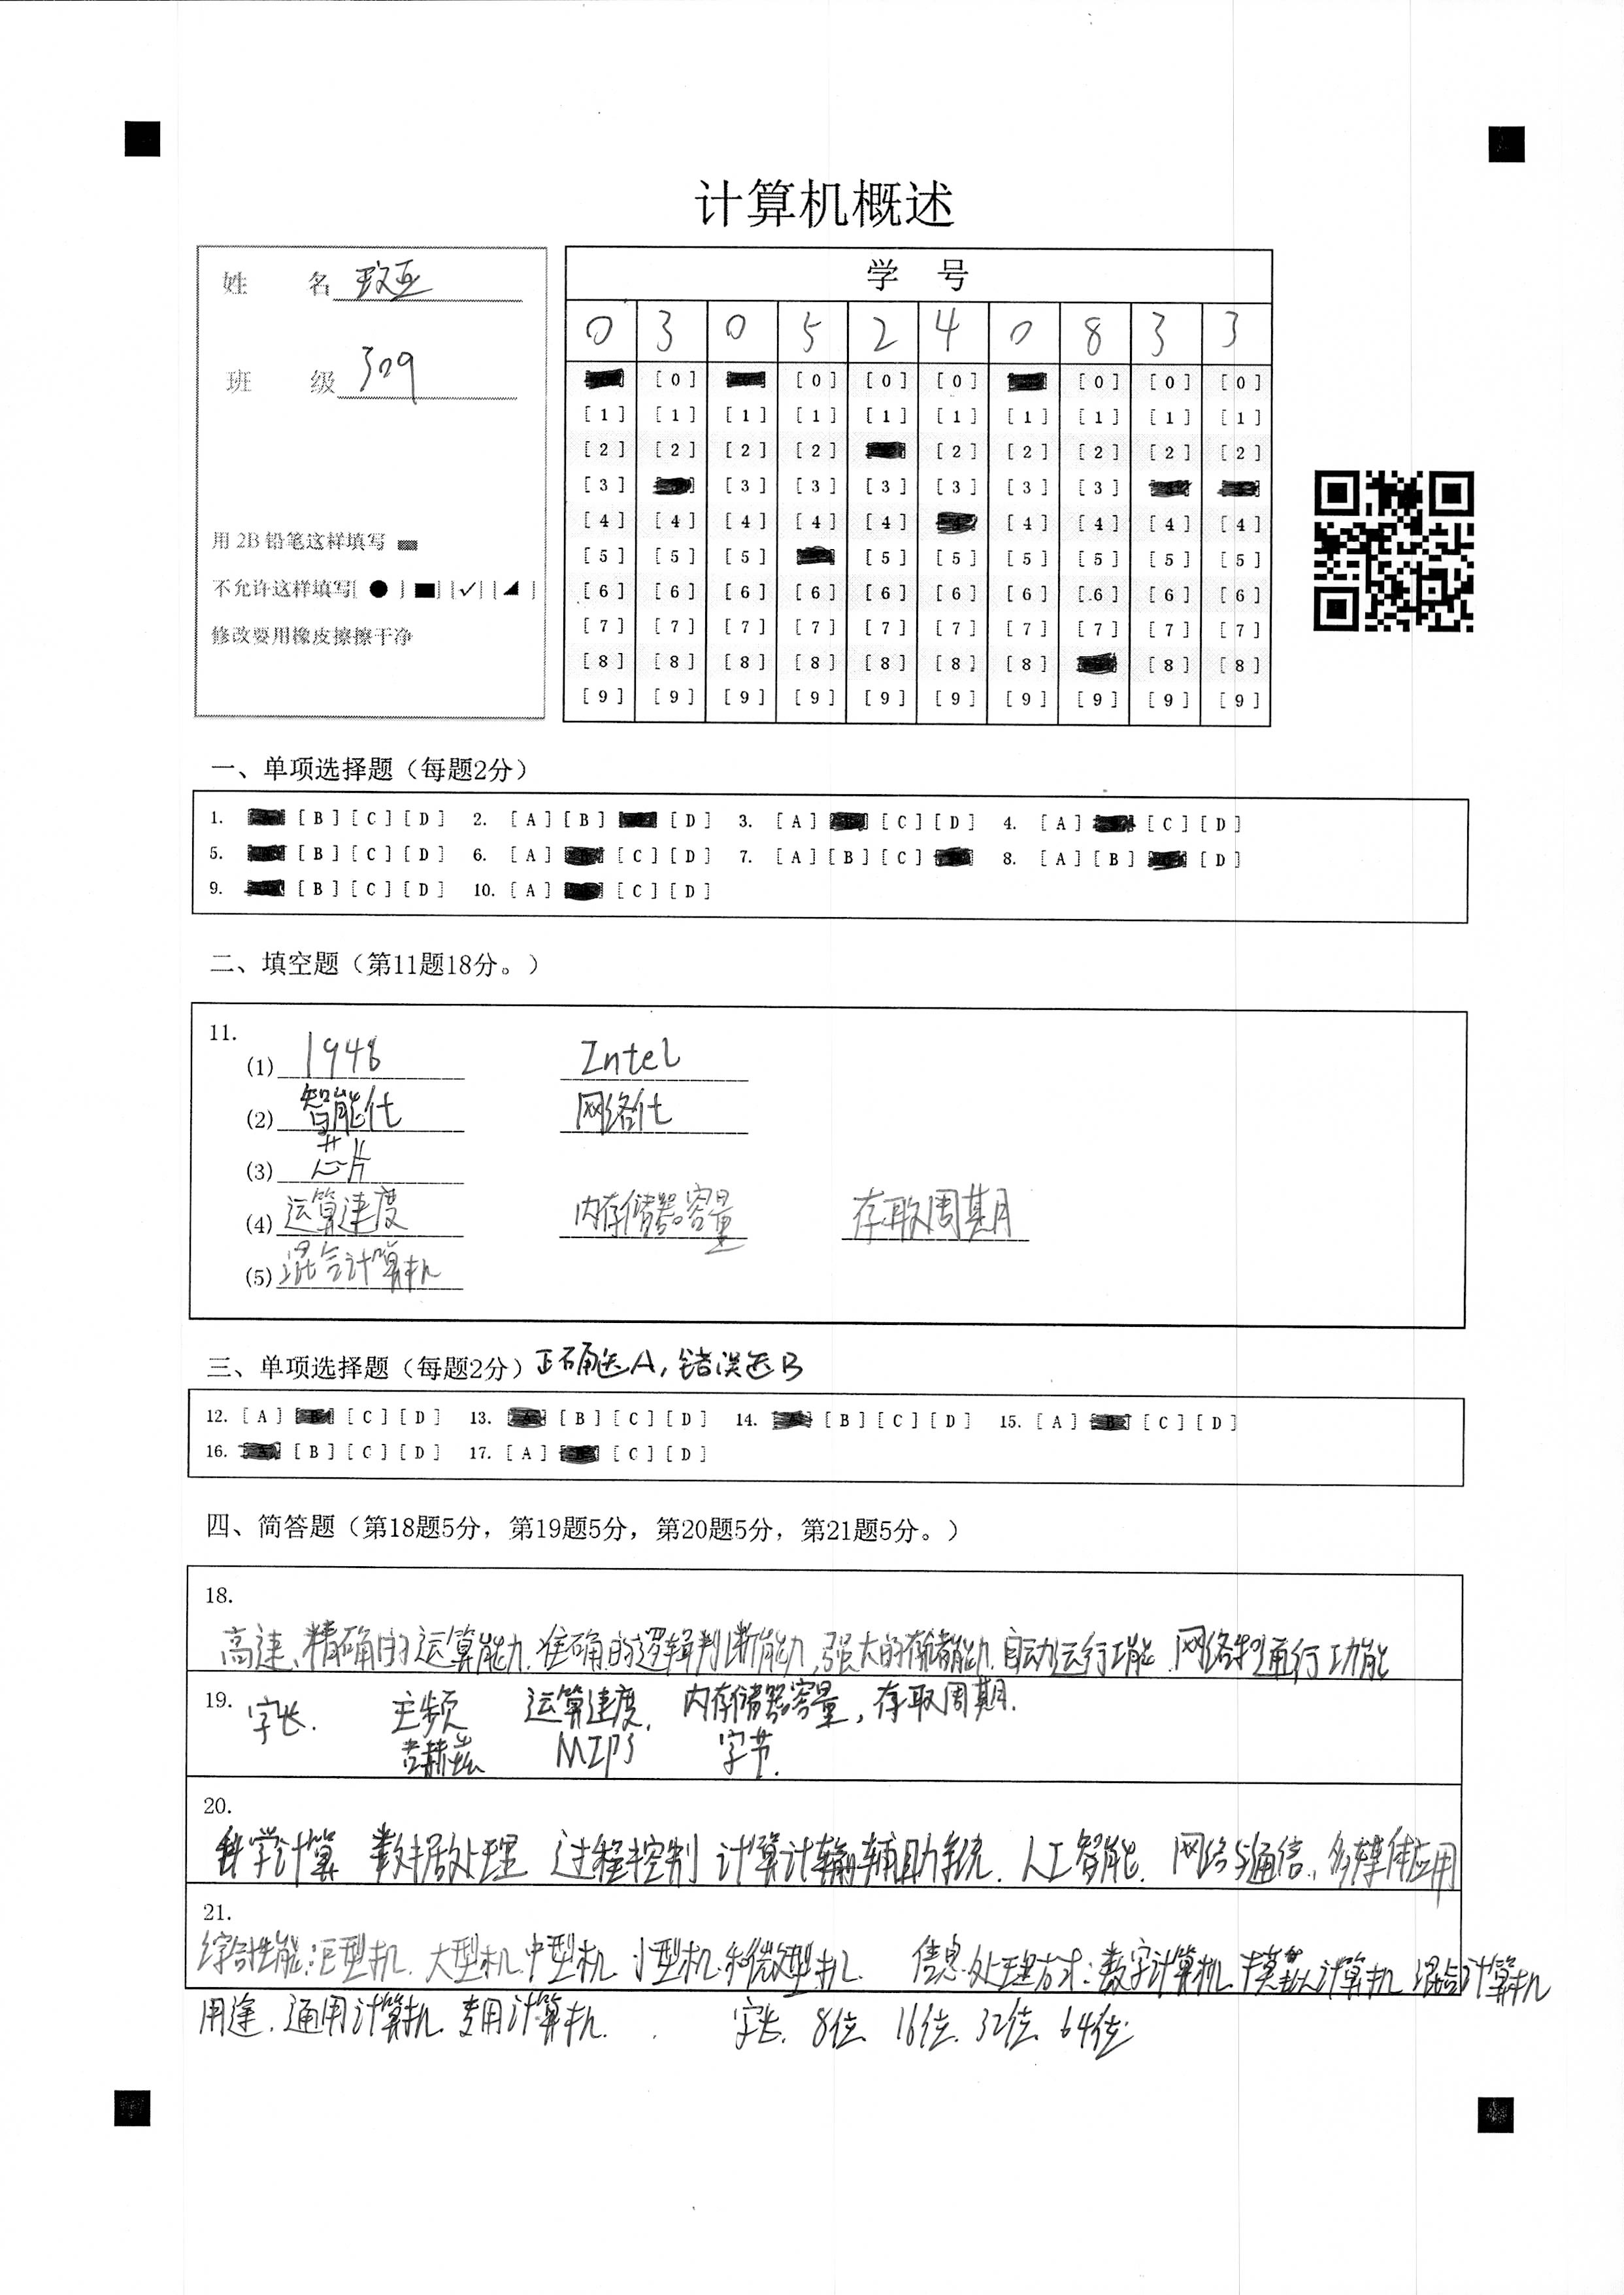 计算机概述
姓 名 玟亚
班 级 309
用 2B 铅笔这样填写
不允许这样填写[ ● ] [■] [✓] [◢ ]
修改要用橡皮擦擦干净
学 号
0 3 0 5 2 4 0 8 3 3
[0] [0] [0] [0] [0] [0] [0]
[1] [1] [1] [1] [1] [1] [1] [1] [1] [1]
[2] [2] [2] [2] [2] [2] [2] [2] [2]
[3] [3] [3] [3] [3] [3] [3]
[4] [4] [4] [4] [4] [4] [4] [4] [4]
[5] [5] [5] [5] [5] [5] [5] [5] [5]
[6] [6] [6] [6] [6] [6] [6] [6] [6] [6]
[7] [7] [7] [7] [7] [7] [7] [7] [7] [7]
[8] [8] [8] [8] [8] [8] [8] [8] [8]
[9] [9] [9] [9] [9] [9] [9] [9] [9] [9]
一、单项选择题（每题2分）
1. [B] [C] [D] 2. [A] [B] [D] 3. [A] [C] [D] 4. [A] [C] [D]
5. [B] [C] [D] 6. [A] [C] [D] 7. [A] [B] [C] 8. [A] [B] [D]
9. [B] [C] [D] 10. [A] [C] [D]
二、填空题（第11题18分。）
11.
(1) 1946 Intel
(2) 智能化 网络化
(3) 芯片
(4) 运算速度 内存储器容量 存取周期
(5) 混合计算机
三、单项选择题（每题2分）正确选A, 错误选B
12. [A] [C] [D] 13. [B] [C] [D] 14. [B] [C] [D] 15. [A] [C] [D]
16. [B] [C] [D] 17. [A] [C] [D]
四、简答题（第18题5分，第19题5分，第20题5分，第21题5分。）
18.
高速、精确的运算能力. 准确的逻辑判断能力, 强大的存储能力. 自动运行功能. 网络与通行功能
19. 字长. 主频 运算速度. 内存储器容量, 存取周期.
吉赫兹 MIPS 字节.
20.
科学计算 数据处理 过程控制 计算计辅助系统. 人工智能. 网络与通信. 多媒体应用
21.
综合性能: 巨型机. 大型机. 中型机. 小型机. 和微型机. 信息处理方式: 数字计算机. 模拟计算机 混合计算机
用途. 通用计算机. 专用计算机. 字长. 8位. 16位. 32位. 64位.